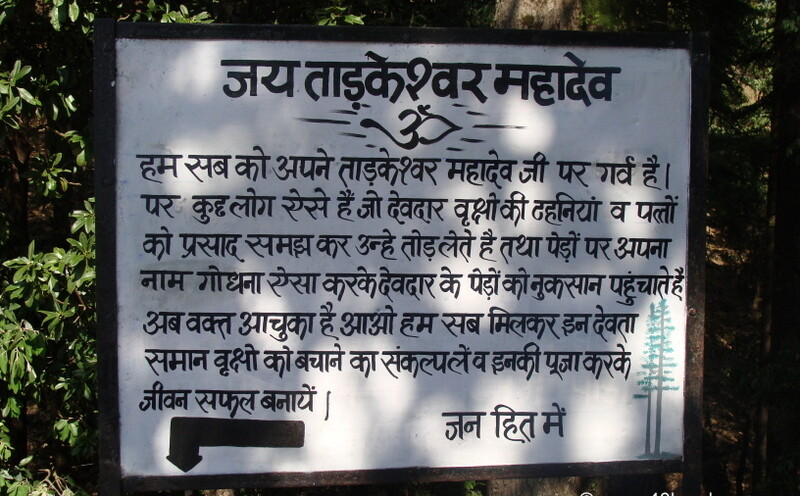 जय ताड़केश्वर महादेव
ॐ
हम सब को अपने ताड़केश्वर महादेव जी पर गर्व है।
पर कुछ लोग ऐसे हैं जो देवदार वृक्षों की टहनियां व पत्तों
को प्रसाद समझ कर उन्हे तोड़ लेते है तथा पेड़ों पर अपना
नाम गोधना ऐसा करके देवदार के पेड़ों को नुकसान पहुंचाते है
अब वक्त आचुका है आओ हम सब मिलकर इन देवता
समान वृक्षो को बचाने का संकल्प लें व इनकी पूजा करके
जीवन सफल बनायें।
जन हित में